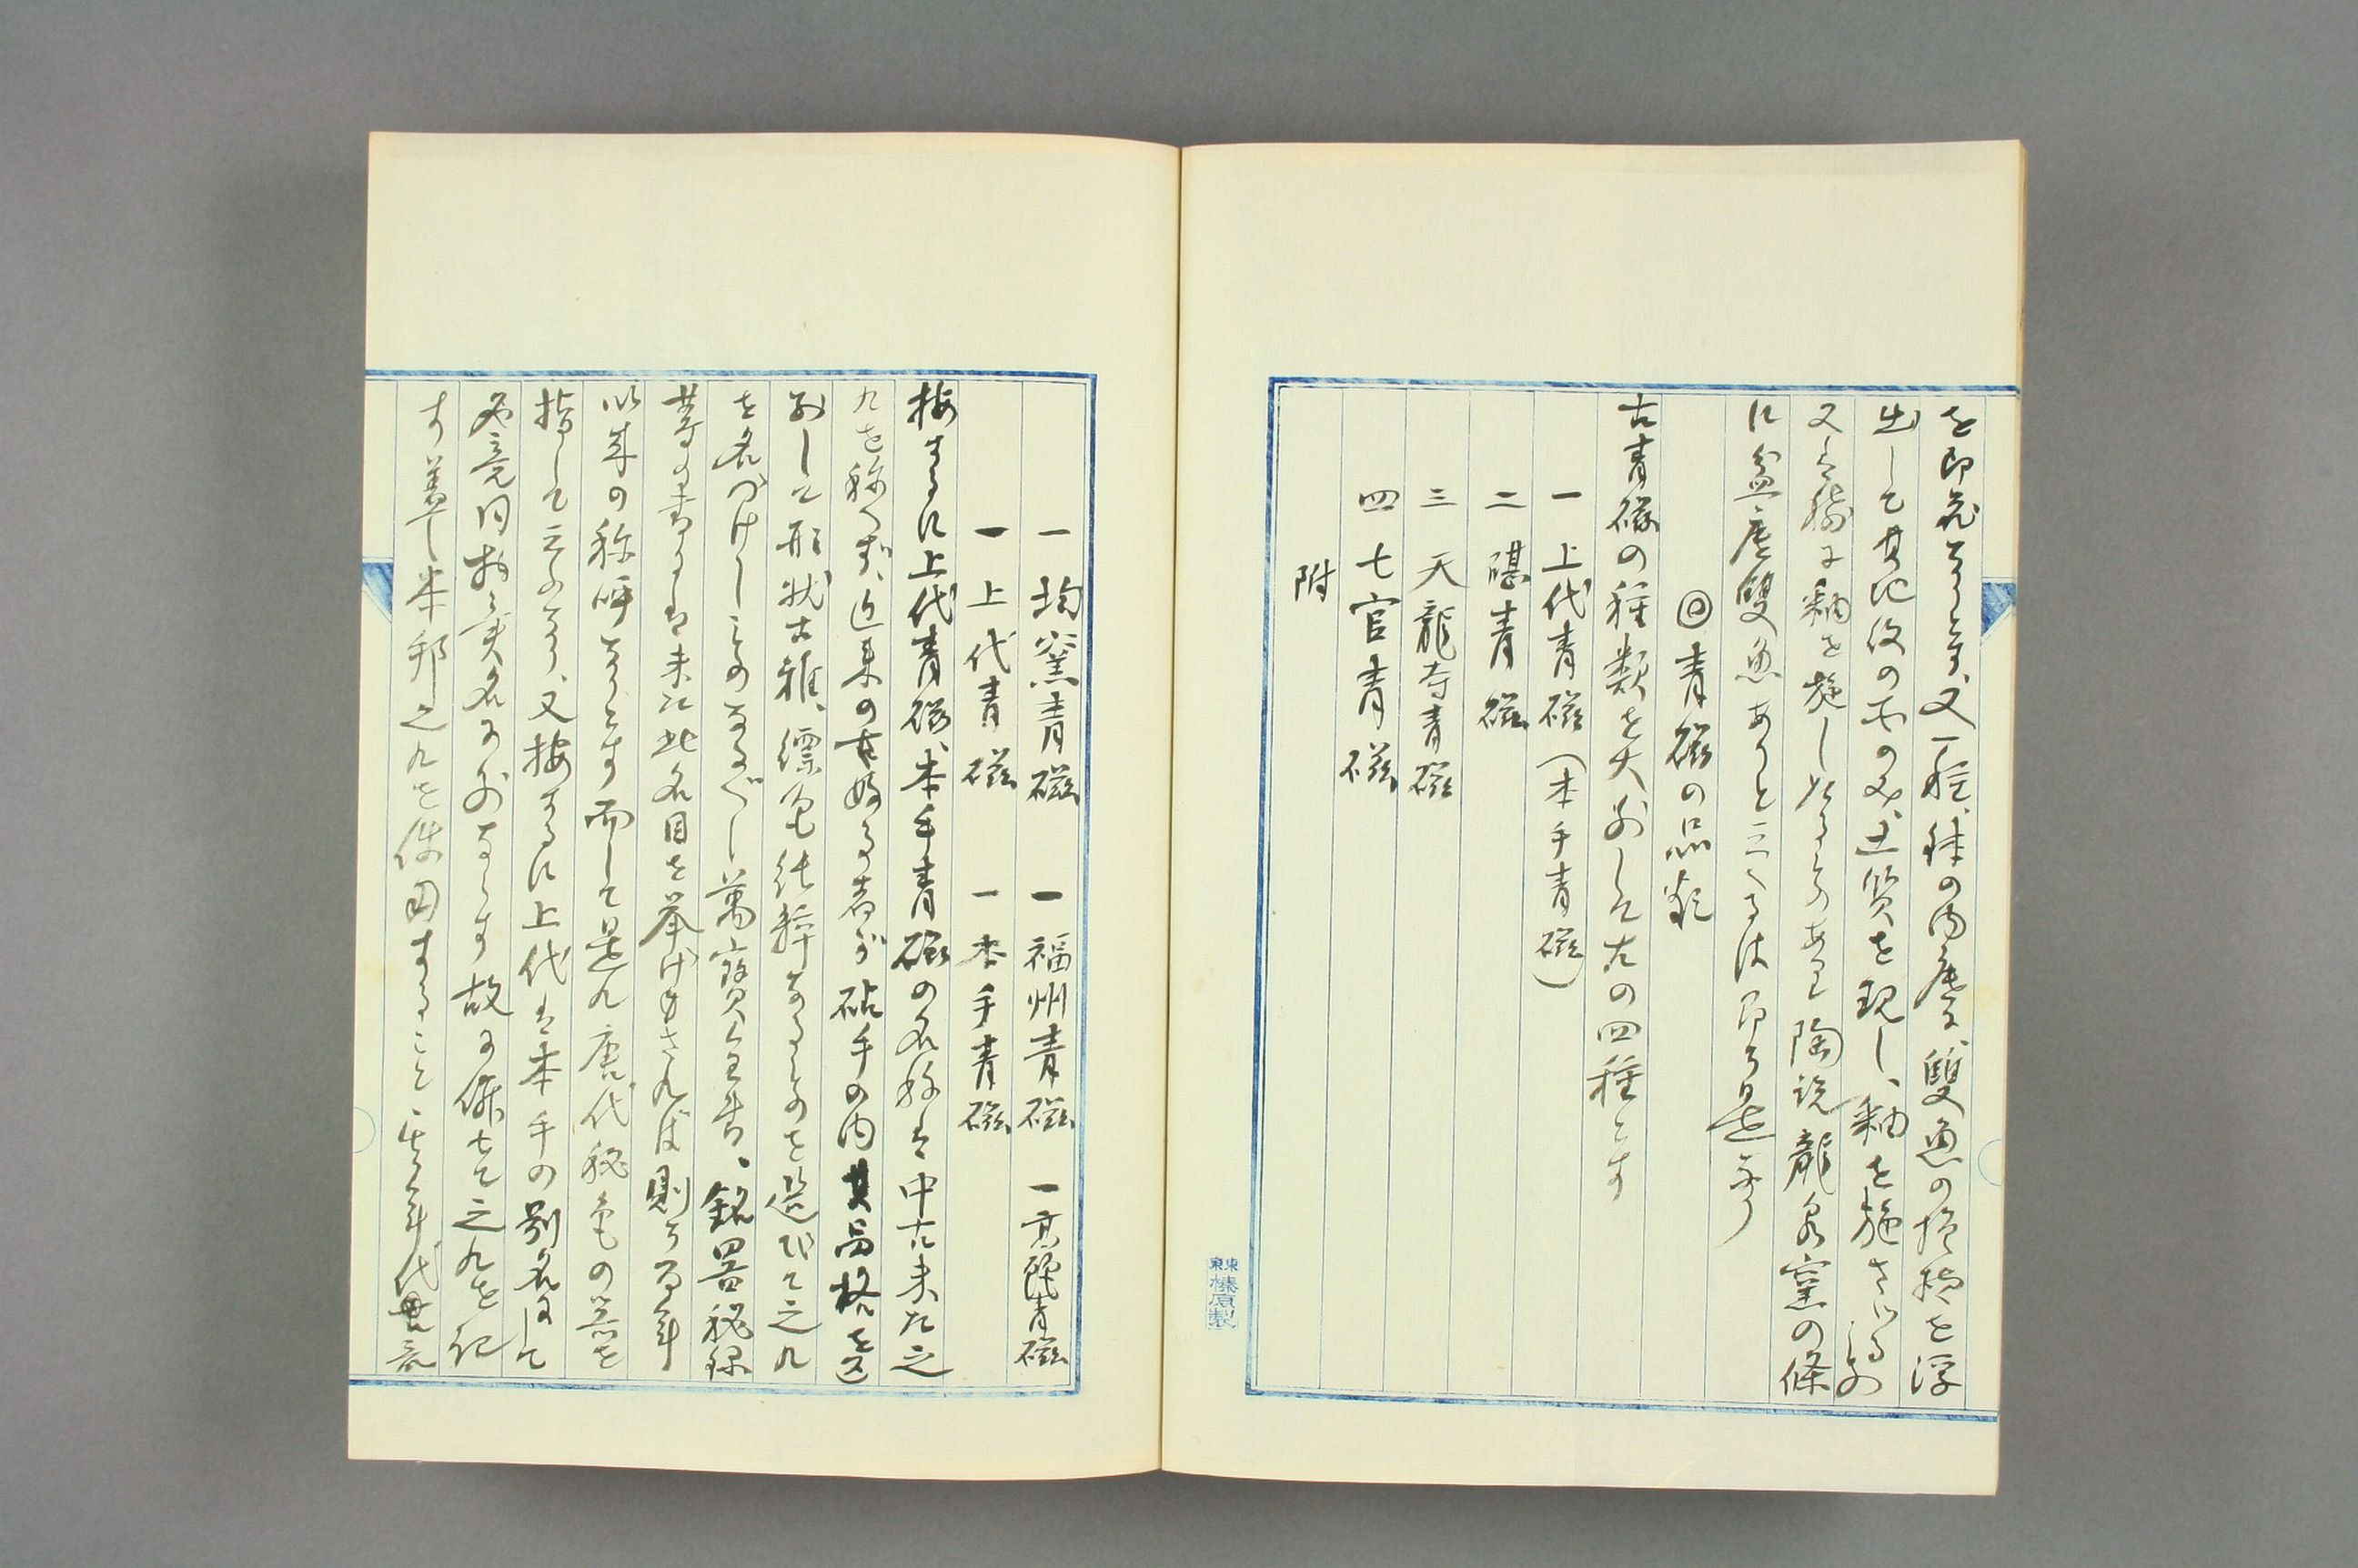 を印花なりとす、又一種、鉢の内底に雙魚の模様を浮
出して其地役の所のみ土質を現し、釉を施さゞるあ
又は釉を施しあるものあり陶説龍泉窯の條
に盆底雙魚ありと云へるは即ち是なり
◎青磁の品類
古青磁の種類を大別して左の四種とす
一 上代青磁(本手青磁)
二 碪青磁
三 天龍寺青磁
四 七官青磁
附
一 均窯青磁 一 福州青磁 一 高麗青磁
一 上代青磁 一 本手青磁
按するに上代青磁、本手青磁の名称は中古未た之
れを称へず、近来の好者が砧手の内其品格を区
別して形状古雅、縹色純粋なるものを選びて之れ
を名づけしものなるべし萬寳全書、銘器秘録
等の書には未た此名目を挙げゆされば則ち百年
以来の称呼なりとす而して是れ唐代秘色の器を
指して云ふなり、又按するに上代は本手の別名にして
必竟同物異名に外ならす故に併せて之れを記
す蓋し本邦之れを使用すること 年代
東京榛原製